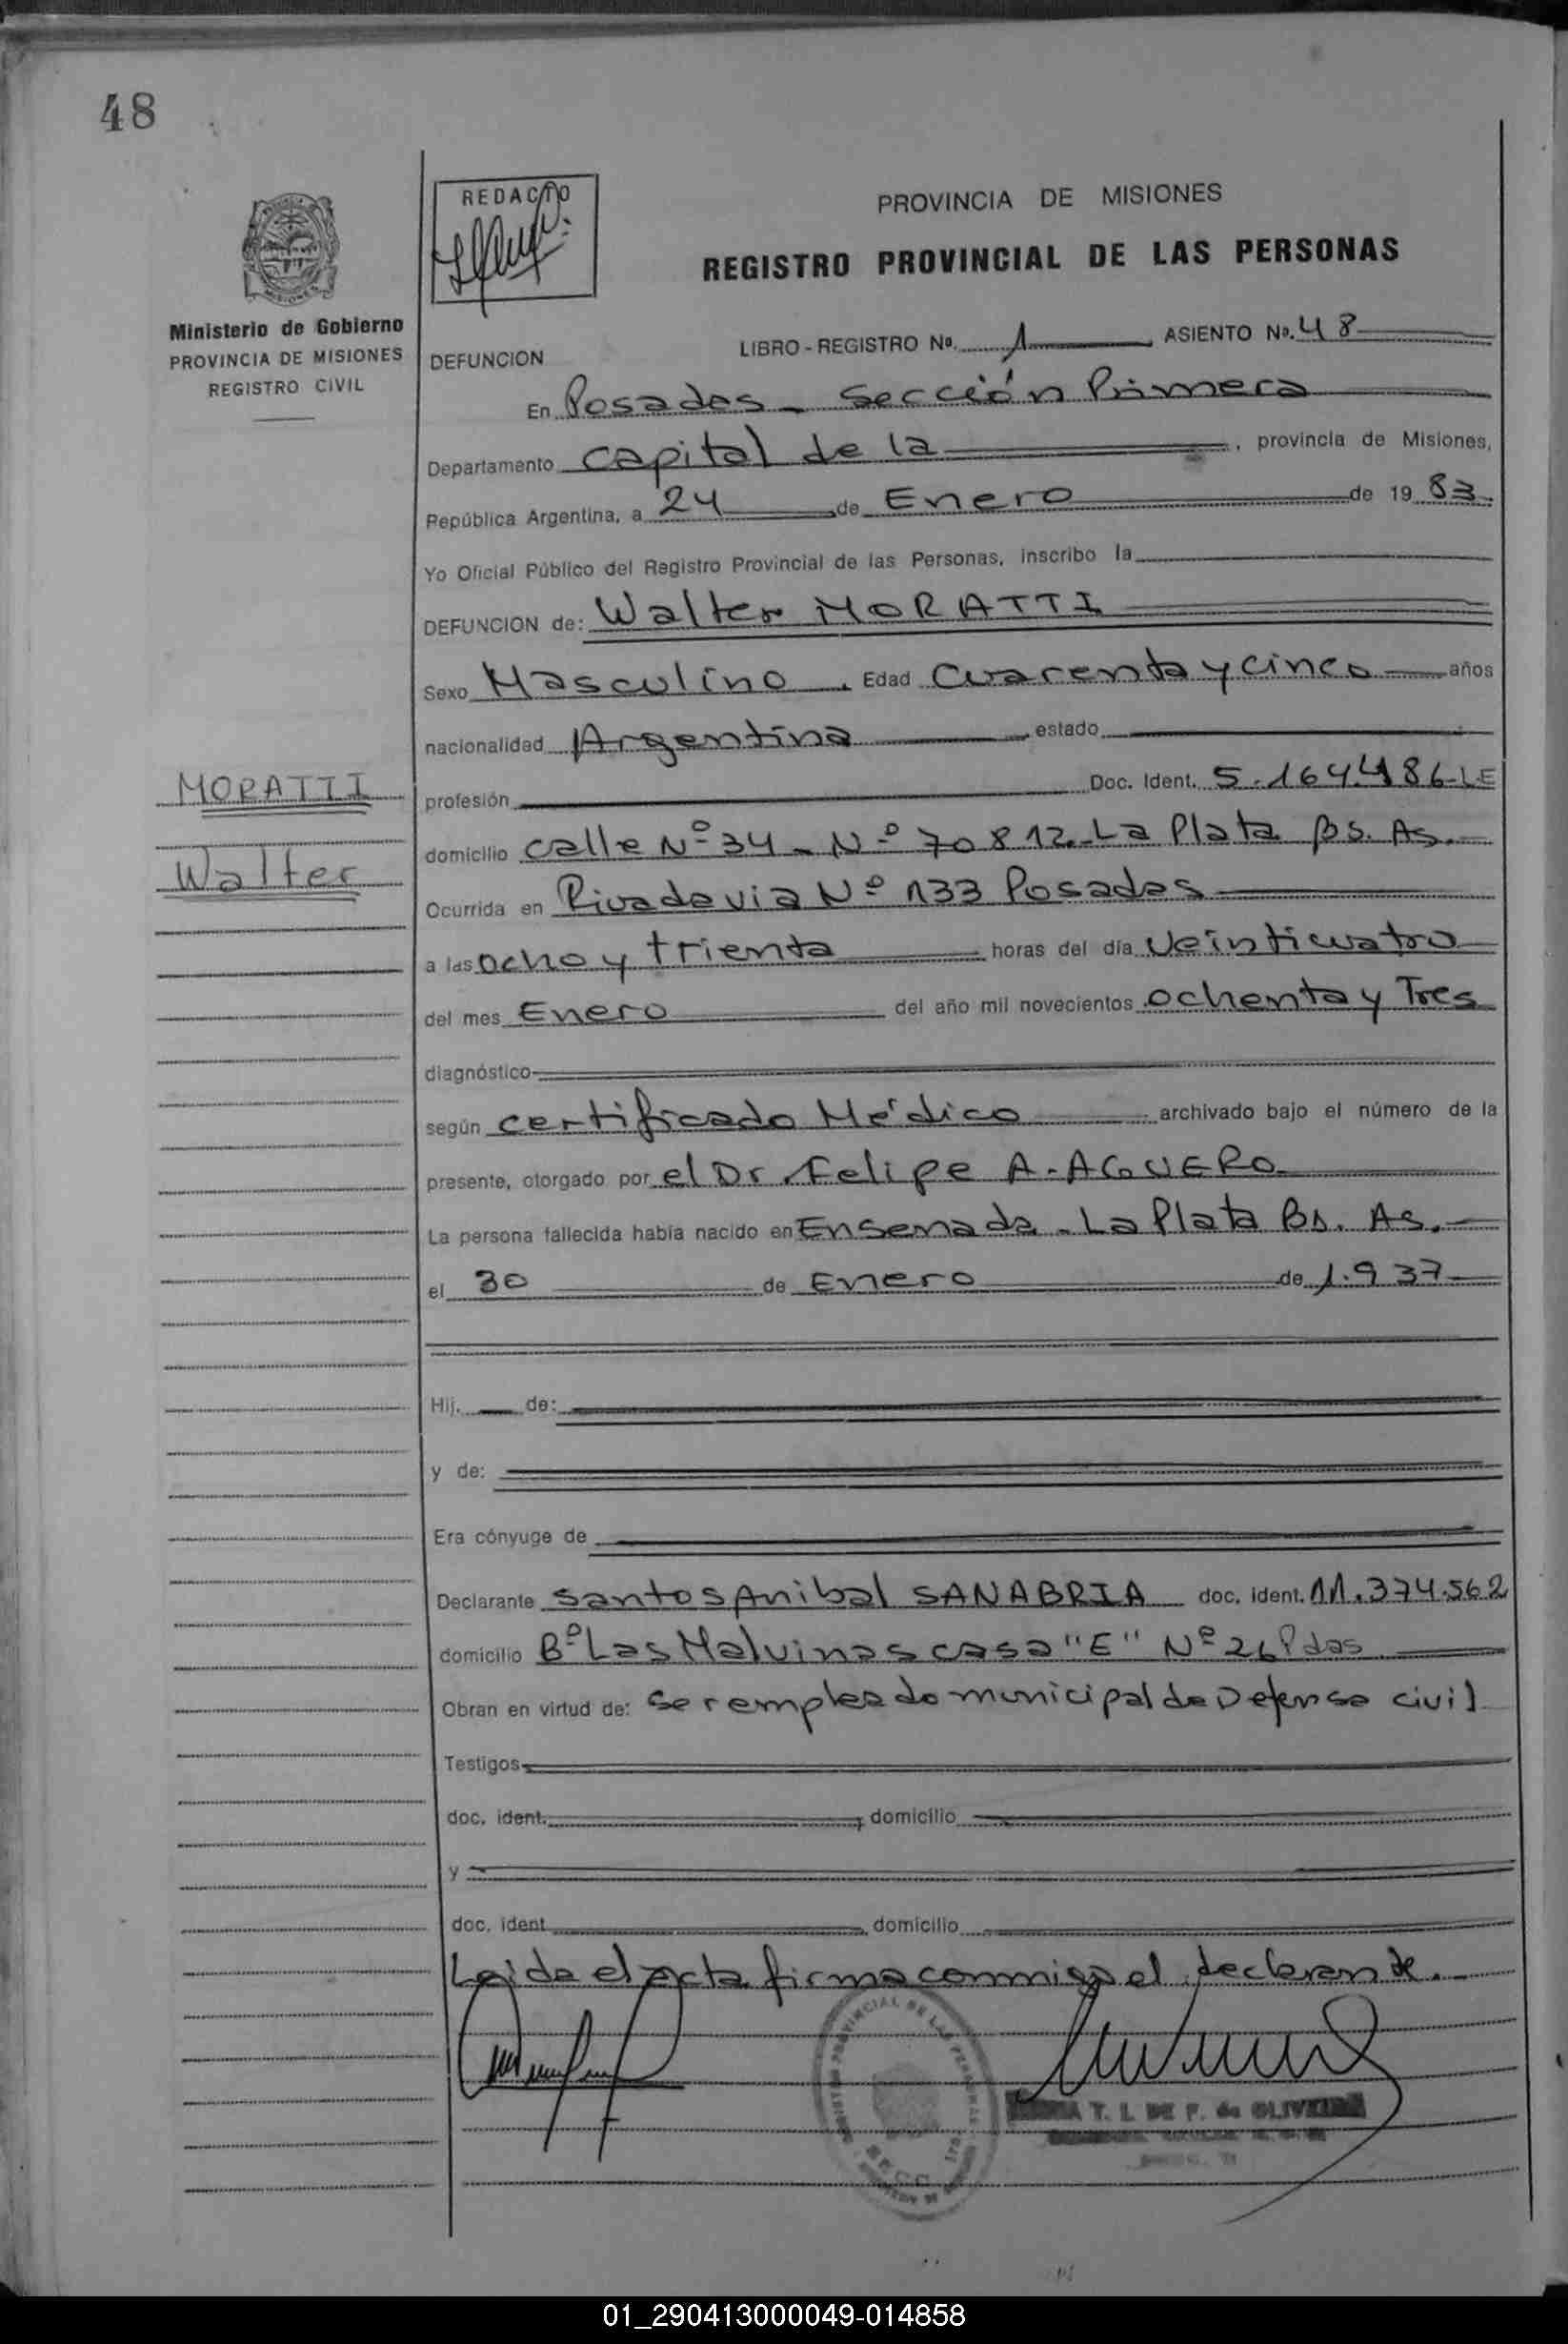 48
REDACTO
PROVINCIA DE MISIONES
REGISTRO PROVINCIAL DE LAS PERSONAS
Ministerio de Gobierno
PROVINCIA DE MISIONES
REGISTRO CIVIL
MISIONES
LIBRO-REGISTRO No. 1 ASIENTO No. 48
DEFUNCION
En Posadas - Sección Primera
Departamento Capital de la , provincia de Misiones,
República Argentina, a 24 de Enero de 1983.
Yo Oficial Público del Registro Provincial de las Personas, inscribo la
DEFUNCION de: Walter MORATTI
Sexo Masculino. Edad Cuarenta y cinco años
nacionalidad Argentina estado
MORATTI
Walter
profesión Doc. Ident. 5.164.486-LE
domicilio calle Nº 34 - Nº 70812.- La Plata Bs. As.-
Ocurrida en Rivadavia Nº 133 Posadas
a las ocho y trienta horas del día veinticuatro
del mes Enero del año mil novecientos ochenta y Tres
diagnóstico
según certificado Médico archivado bajo el número de la
presente, otorgado por el Dr. Felipe A. AGUERO
La persona fallecida había nacido en Ensenada - La Plata Bs. As.-
el 30 de Enero de 1.937
Hij. de:
y de:
Era cónyuge de
Declarante Santos Anibal SANABRIA doc. ident. 11.374.562
domicilio Bº Las Malvinas casa "E" Nº 26 Pdas
Obran en virtud de: ser empleado municipal de Defensa civil
Testigos
doc. ident. , domicilio
y
doc. ident , domicilio
Leida el acta firma conmigo el declarante.-
T. I. DE P. de OLIVEIRA
01_290413000049-014858